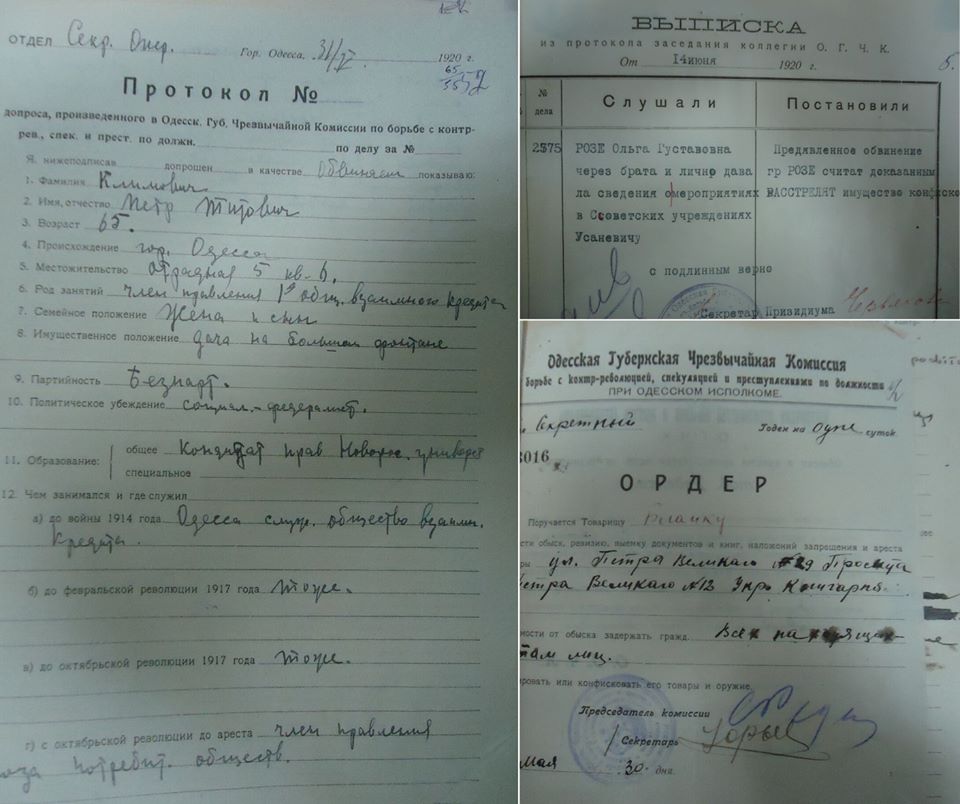 ОТДЕЛ Секр. Опер.
Гор. Одесса, 31/V 1920 г.
Протокол №
допроса, произведенного в Одесск. Губ. Чрезвычайной Комиссии по борьбе с контр-
рев., спек. и прест. по должн. по делу за №
Я. нижеподписав допрошен в качестве Обвиняем показываю:
1. Фамилия Климович
2. Имя, отчество Петр Титович
3. Возраст 65.
4. Происхождение гор. Одесса
5. Местожительство Отрадная 5 кв. 6.
6. Род занятий член правления 1го общ. взаимного кредита
7. Семейное положение Жена и сын
8. Имущественное положение дача на большом фонтане
9. Партийность Безпарт.
10. Политическое убеждение социал.-федералист.
11. Образование: общее Кондидат прав Новорос. университ
специальное
12. Чем занимался и где служил
а) до войны 1914 года Одесса служ. общество взаимн.
кредита.
б) до февральской революции 1917 года тоже.
в) до октябрьской революции 1917 года тоже.
г) с октябрьской революции до ареста член правления
юза потребит. обществ.
ВЫПИСКА
из протокола заседания коллегии О. Г. Ч. К.
От 14 июня 1920 г.
5.
№ дела
Слушали
Постановили
2575
РОЗЕ Ольга Густавовна
через брата и лично дава
ла сведения о мероприятиях
в Советских учреждениях
Усаневичу
Предявленое обвинение
гр РОЗЕ считат доказанным
РАССТРЕЛЯТ имущество конфиско
с подлинным верно
Секретар Призидиума
Одесская Губернская Чрезвычайная Комиссия
борьбе с контр-революцией, спекуляцией и преступлениями по должности
ПРИ ОДЕССКОМ ИСПОЛКОМЕ.
Секретный
Годен на одне суток.
3016
ОРДЕР
Поручается Товарищу
сти обыск, ревизию, выемку документов и книг, наложений запрещения и ареста
ул. Петра Великаго
Петра Великаго №12 Укр. Книгарня
мости от обыска задержать гражд. Всех
там лиц.
ировать или конфисковать его товары и оружие.
Председатель комиссии
Секретарь
Мая 30 дня.